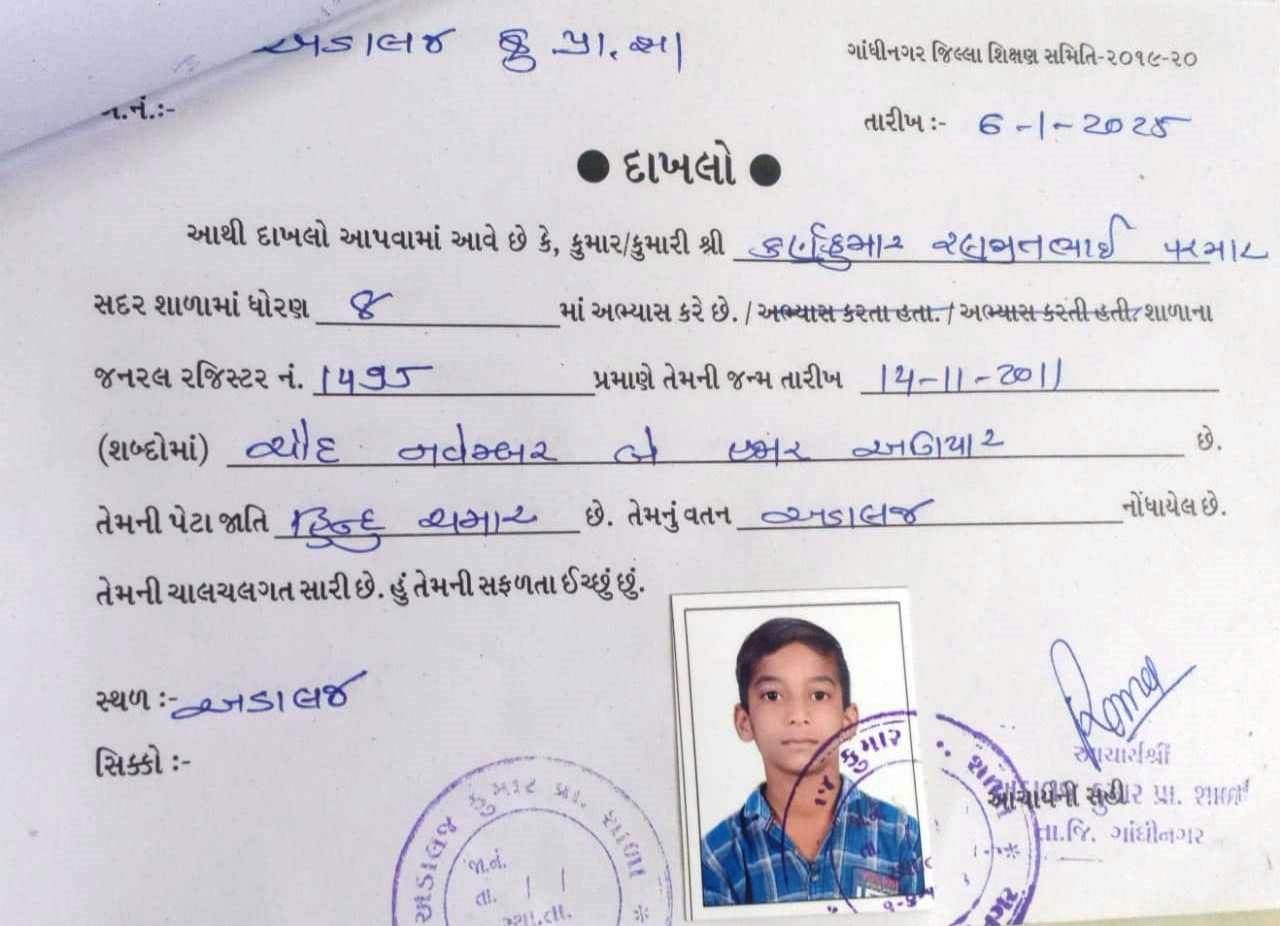 અડાલજ કુ પ્રા. શા
ગાંધીનગર જિલ્લા શિક્ષણ સમિતિ-૨૦૧૯-૨૦
.નં.:-
તારીખ :- 6-1-2025
● દાખલો ●
આથી દાખલો આપવામાં આવે છે કે, કુમાર/કુમારી શ્રી કર્ણકુમાર રણજીતભાઈ પરમાર
સદર શાળામાં ધોરણ ૪ માં અભ્યાસ કરે છે. / અભ્યાસ કરતા હતા. / અભ્યાસ કરતી હતી. શાળાના
જનરલ રજિસ્ટર નં. 1495 પ્રમાણે તેમની જન્મ તારીખ 14-11-2011
(શબ્દોમાં) ચૌદ નવેમ્બર બે હજાર અગિયાર છે.
તેમની પેટા જાતિ હિન્દુ ચમાર છે. તેમનું વતન અડાલજ નોંધાયેલ છે.
તેમની ચાલચલગત સારી છે. હું તેમની સફળતા ઈચ્છું છું.
સ્થળ :- અડાલજ
સિક્કો :-
અડાલજ કુમાર પ્રા. શાળા
જા.નં.
તા.
કુમાર
શાળા
આચાર્યશ્રી
આચાર્યની સહી
કુમાર પ્રા. શાળા
તા.જિ. ગાંધીનગર